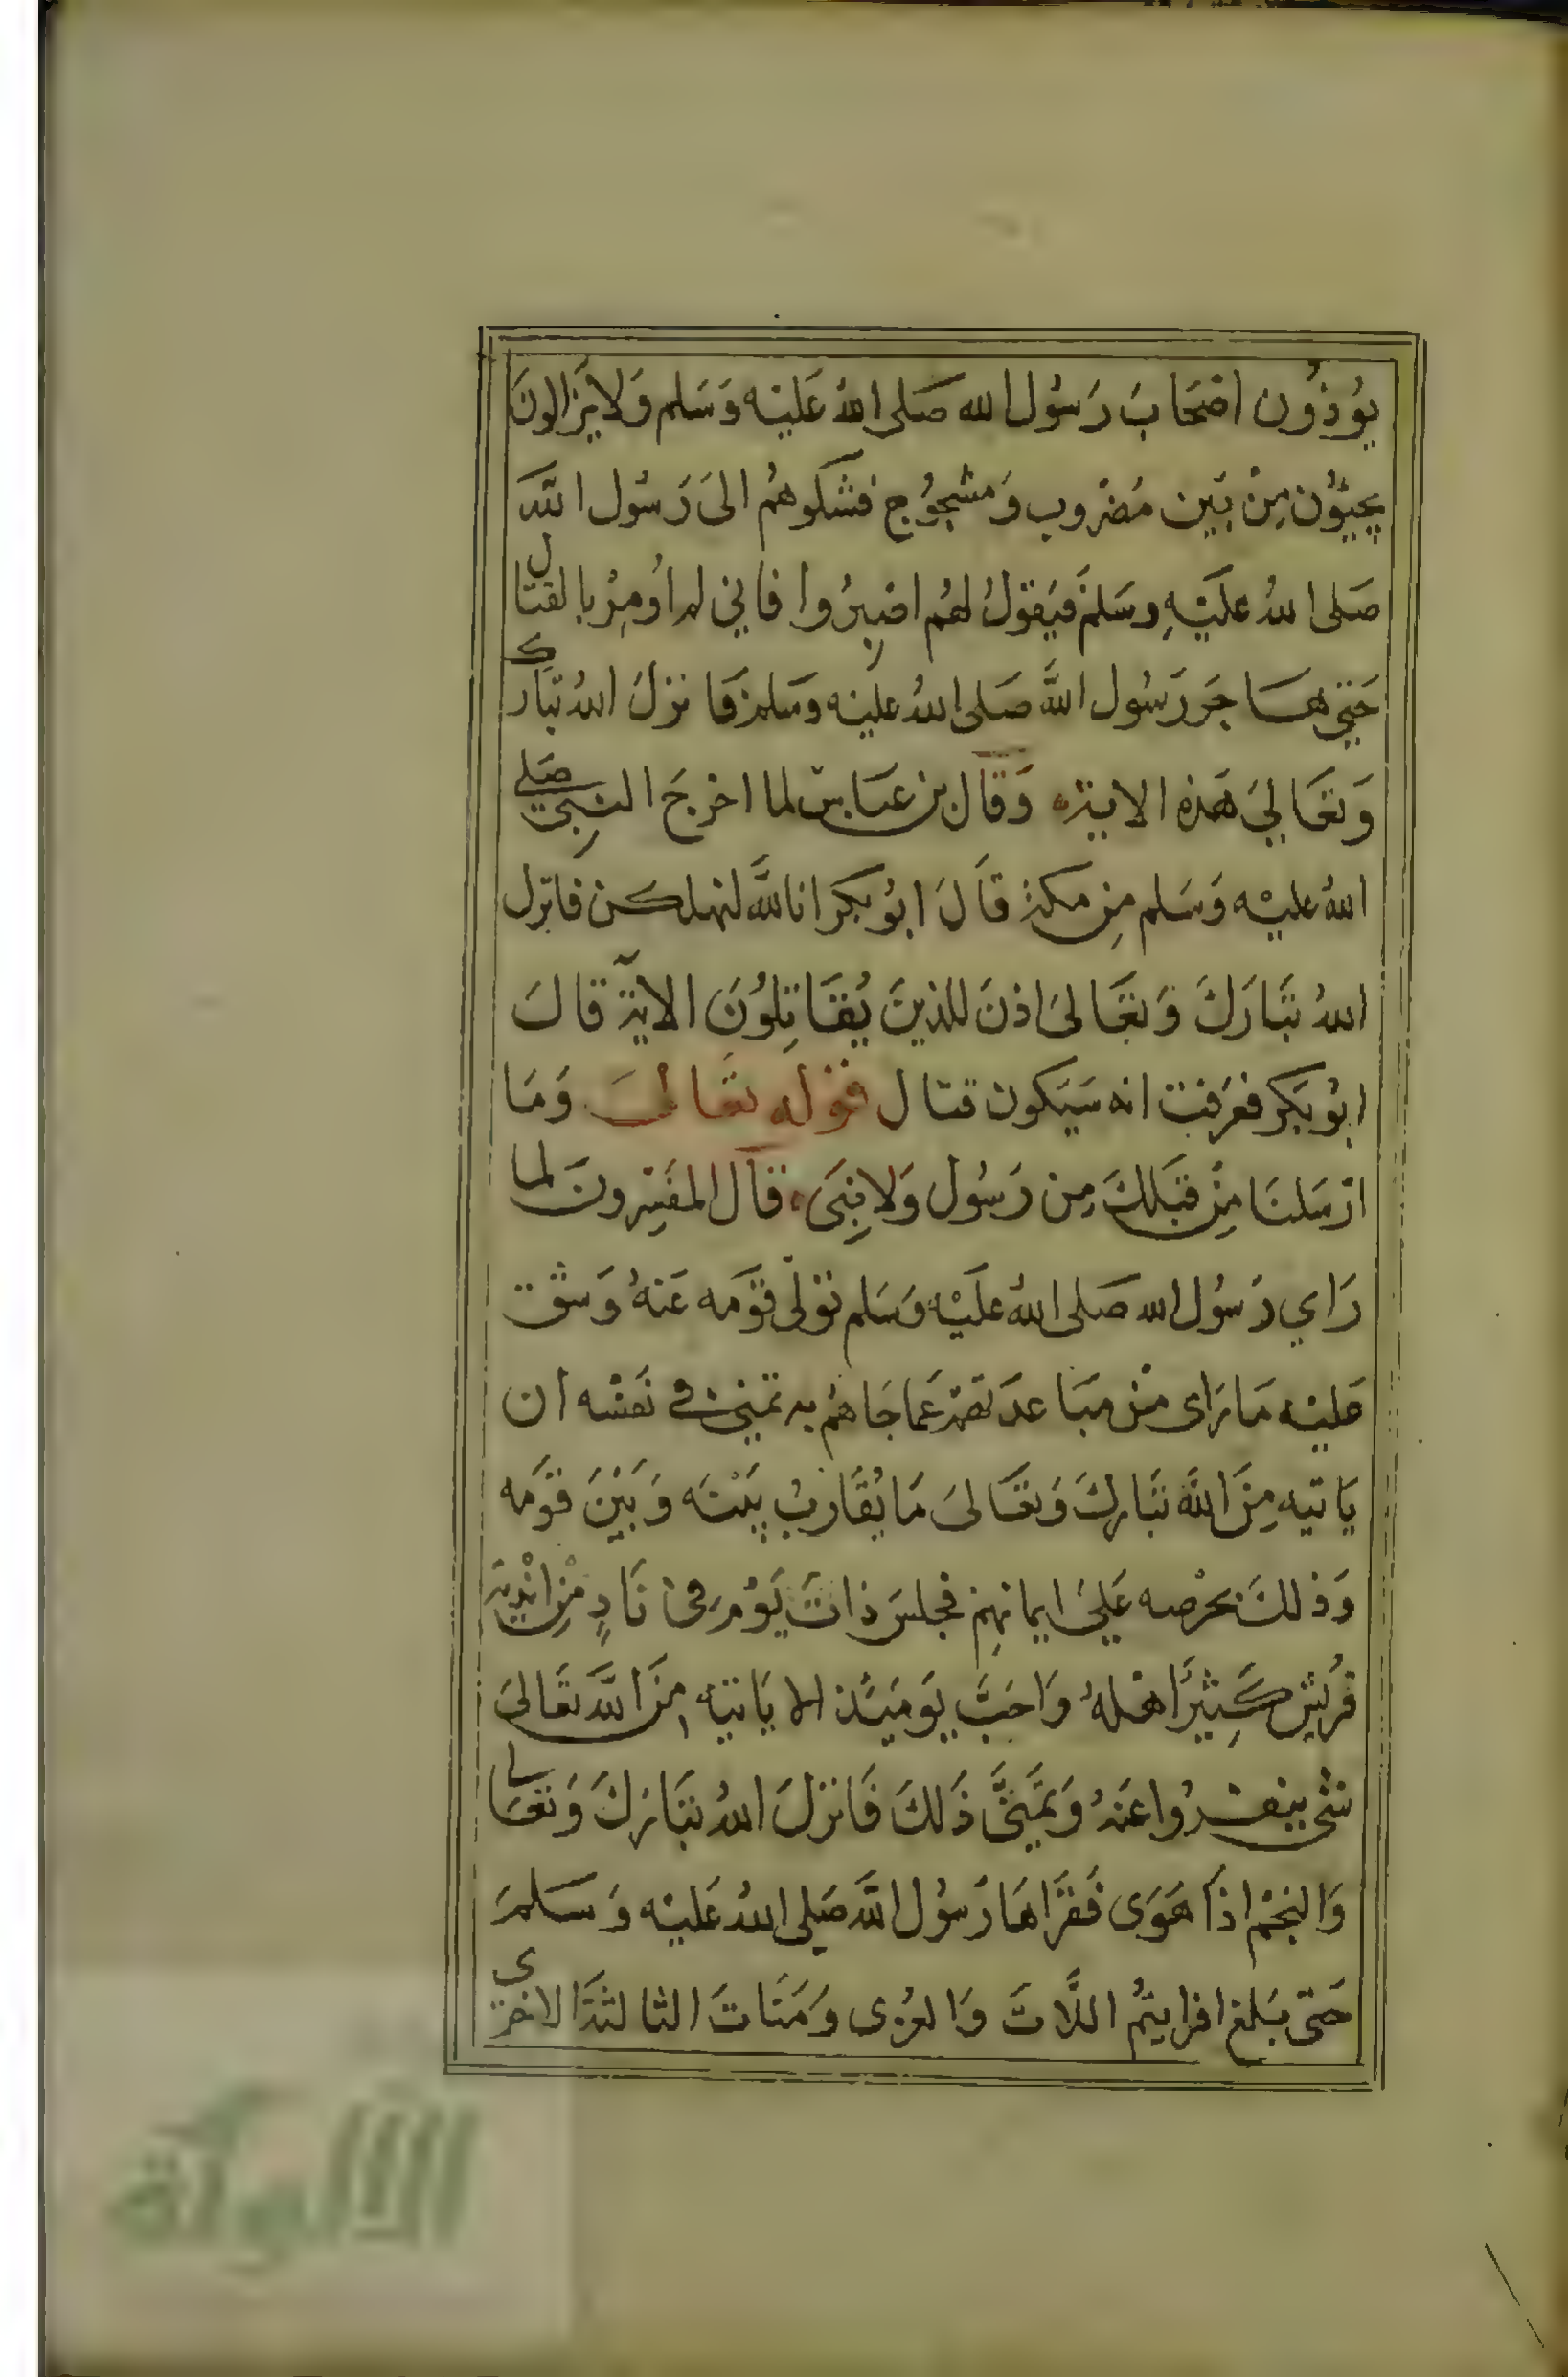 يُوذُون اصْحَابَ رَسُول الله صَلى اللهُ عَليْه وَسَلم وَلا يَزالونَ
يجيؤُن مِنْ بَين مَضْروب وَمشجوُج فشكوهُم الىَ رَسُول اللَّه
صَلى اللهُ عليْهِ وسَلمَ فيَقولُ لهُم اصْبِرُوا فاني لم اُومِرْ بالقتال
حَتي هَاجَر رَسُول اللَّه صَلى اللهُ عليْه وَسَلم فَانزلَ اللهُ تبَارك
وَتعَالىَ هَذه الايَة وَقال بن عبَاس لما اخرجَ النبي صَلى
اللهُ عليْه وَسَلم مِن مكة قَالَ ابوُ بكر انا للَّه لنهلكن فانزل
اللهُ تبَارَكَ وَتعَالىَ اذنَ للذينَ يُقَاتِلوُنَ الآية قالَ
ابوُ بَكر فعَرفت انه سَيَكون قتال قوْله تعَالىَ وَمَا
ارْسَلنَا مِنْ قبَلكَ مِن رَسُول وَلا نبِيَ قال المفَسِرونَ لما
رَاي رَسُول الله صَلى اللهُ عليْه وَسَلم توَلّى قوَمه عَنهُ وَشق
عَليْه مَا رَاى مِنْ مبَاعدَتهمْ عَما جَاهُم به تمني في نَفسْه ان
يَاتيه مِنَ اللَّه تبَاركَ وَتعَالىَ مَا يُقَاربُ بيَنْه وَبَيْنَ قوَمه
وَذلكَ بحرْصه عَليَ ايمانهِم فجلسَ ذاتَ يَوْم فى نَادٍ مِنْ انْدِيَة
قرُيش كَثِيْر اهْلهُ وَاحَبَّ يَومَئذ الا يَاتيَه مِنَ اللَّه تعَالىَ
شئ ينفرُوا عَنهُ وَتمَنىَّ ذَلكَ فَانزلَ اللهُ تبَاركَ وَتعَالى
وَالنجْم اذَا هَوَى فَقرَاهَا رَسُول اللَّه صَلى اللهُ عَليْه وَسَلمَ
حَتى بَلغ افرايتُم اللَّاتَ وَالعُزى وَمَنَاتَ الثالثَة الاخرى
الألوكة